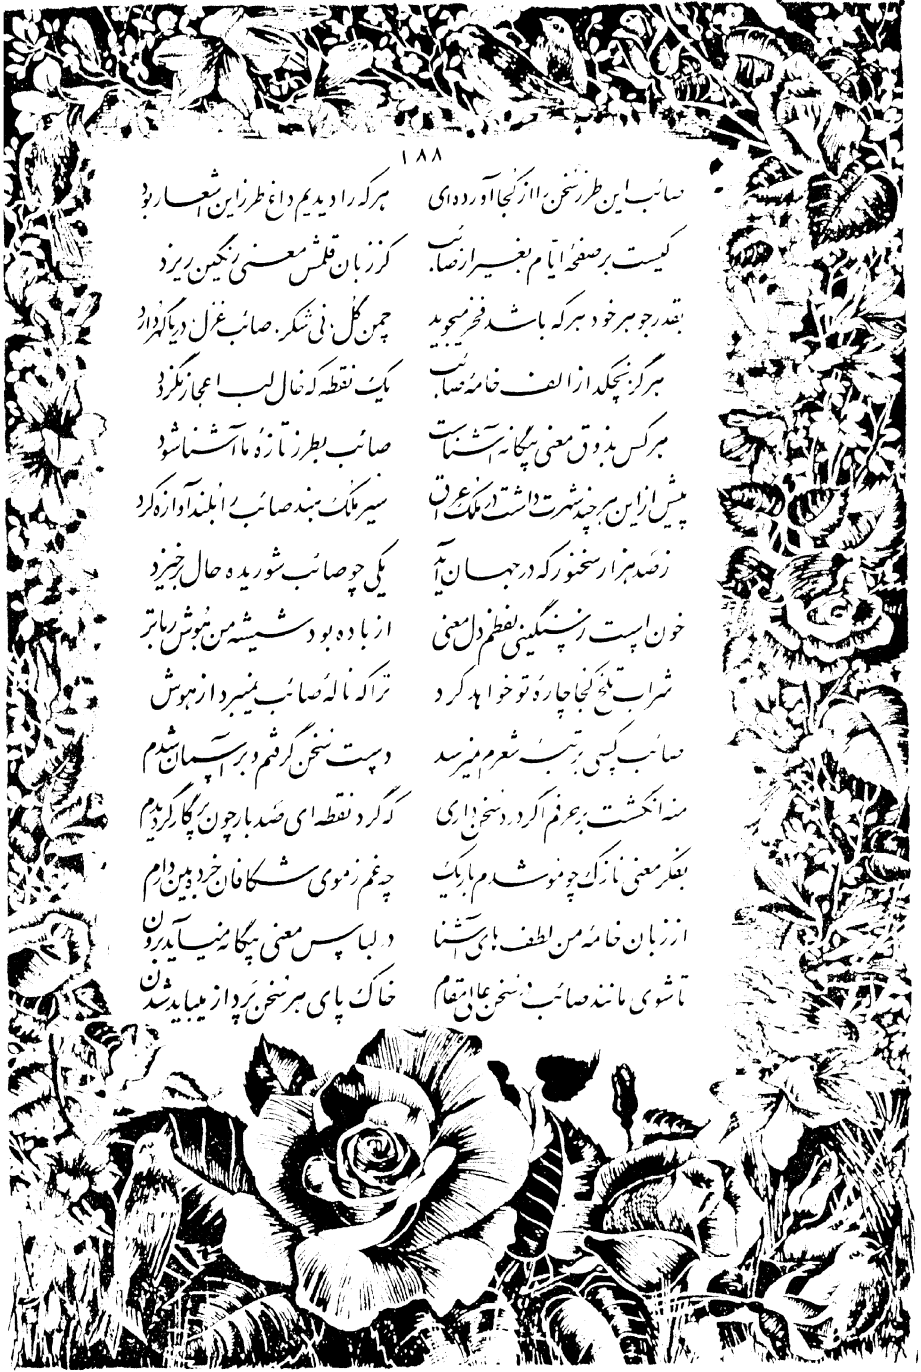 ۱۸۸
صائب این طرز سخن را از کجا آورده‌ای    هرکه را دیدیم داغ طرز این اشعار بود
کیست بر صفحهٔ ایام بغیر از صائب    کز زبان قلمش معنی رنگین ریزد
بقدر جوهر خود هرکه باشد فخر میجوید    چمن گل، نی شکر، صائب غزل، دریا گهر دارد
هرگز نچکد از الف خامهٔ صائب    یک نقطه که خال لب اعجاز نگردد
هرکس بذوق معنی بیگانه آشناست    صائب بطرز تازهٔ ما آشنا شود
پیش از این هرچند شهرت داشت در ملک عراق    سیر ملک هند صائب را بلند آوازه کرد
ز صد هزار سخنور که در جهان آید    یکی چو صائب شوریده حال برخیزد
خون است ز سنگینی لفظم دل معنی    از باده بود شیشهٔ من هوش رباتر
شراب تلخ کجا چارهٔ تو خواهد کرد    ترا که نالهٔ صائب نمیبرد از هوش
صائب کسی برتبهٔ شعرم نمیرسد    دست سخن گرفتم و بر آسمان شدم
منه انگشت بر حرفم اگر درد سخن داری    که گرد نقطه‌ای صد بار چون پرگار گردیدم
بفکر معنی نازک چو مو شدم باریک    چه غم ز موی شکافان خرده بین دارم
از زبان خامهٔ من لطف های آشنا    در لباس معنی بیگانه میآید برون
تا شوی مانند صائب در سخن عالی مقام    خاک پای هر سخن پرداز میباید شدن